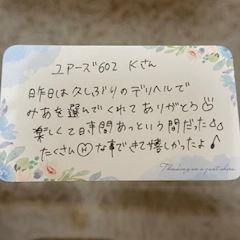 ユアーズ602 Kさん
昨日は久しぶりのデリヘルで
みあを選んでくれてありがとう
楽しくて時間あっという間だった♪♪
たくさんHな事できて嬉しかったよ♪